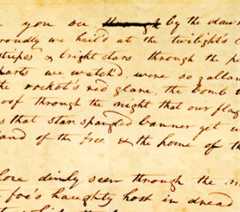 you see through by the daw
roudly we hail'd at the twilight's
stripes & bright stars through the p
parts we watch'd, were so gallan
the rocket's red glare, the bomb
oof through the night that our fla
that star spangled banner yet w
and of the free & the home of th
ore dimly seen through the m
foe's haughty host in dread